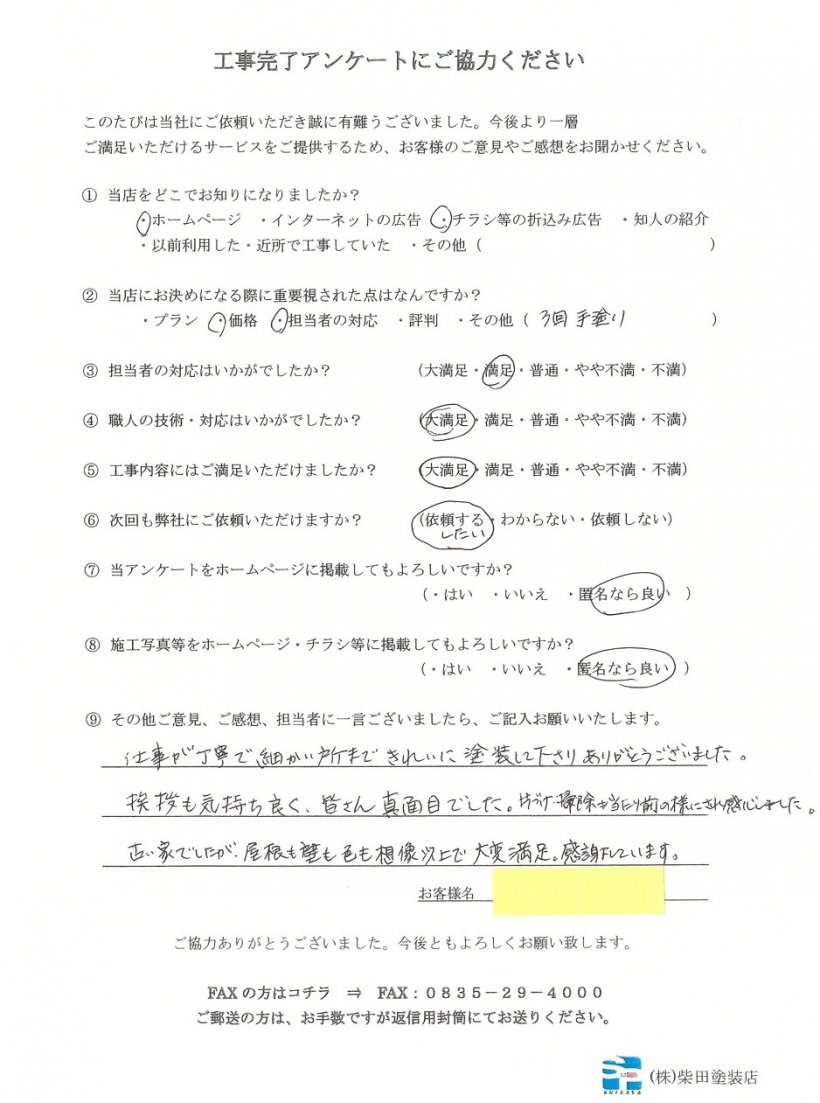 工事完了アンケートにご協力ください
このたびは当社にご依頼いただき誠に有難うございました。今後より一層
ご満足いただけるサービスをご提供するため、お客様のご意見やご感想をお聞かせください。
① 当店をどこでお知りになりましたか?
・ホームページ ・インターネットの広告 ・チラシ等の折込み広告 ・知人の紹介
・以前利用した・近所で工事していた ・その他( )
② 当店にお決めになる際に重要視された点はなんですか?
・プラン ・価格 ・担当者の対応 ・評判 ・その他( 3回手塗り )
③ 担当者の対応はいかがでしたか? (大満足・満足・普通・やや不満・不満)
④ 職人の技術・対応はいかがでしたか? (大満足・満足・普通・やや不満・不満)
⑤ 工事内容にはご満足いただけましたか? (大満足・満足・普通・やや不満・不満)
⑥ 次回も弊社にご依頼いただけますか? (依頼する・わからない・依頼しない)
したい
⑦ 当アンケートをホームページに掲載してもよろしいですか?
(・はい ・いいえ ・匿名なら良い )
⑧ 施工写真等をホームページ・チラシ等に掲載してもよろしいですか?
(・はい ・いいえ ・匿名なら良い )
⑨ その他ご意見、ご感想、担当者に一言ございましたら、ご記入お願いいたします。
仕事が丁寧で、細かい所まできれいに塗装して下さりありがとうございました。
挨拶も気持ち良く、皆さん真面目でした。片づけ、掃除も当たり前の様にされ感心しました。
古い家でしたが、屋根も壁も色も想像以上で大変満足。感謝しています。
お客様名
ご協力ありがとうございました。今後ともよろしくお願い致します。
FAXの方はコチラ ⇒ FAX:0835-29-4000
ご郵送の方は、お手数ですが返信用封筒にてお送りください。
SHIBATA (株)柴田塗装店